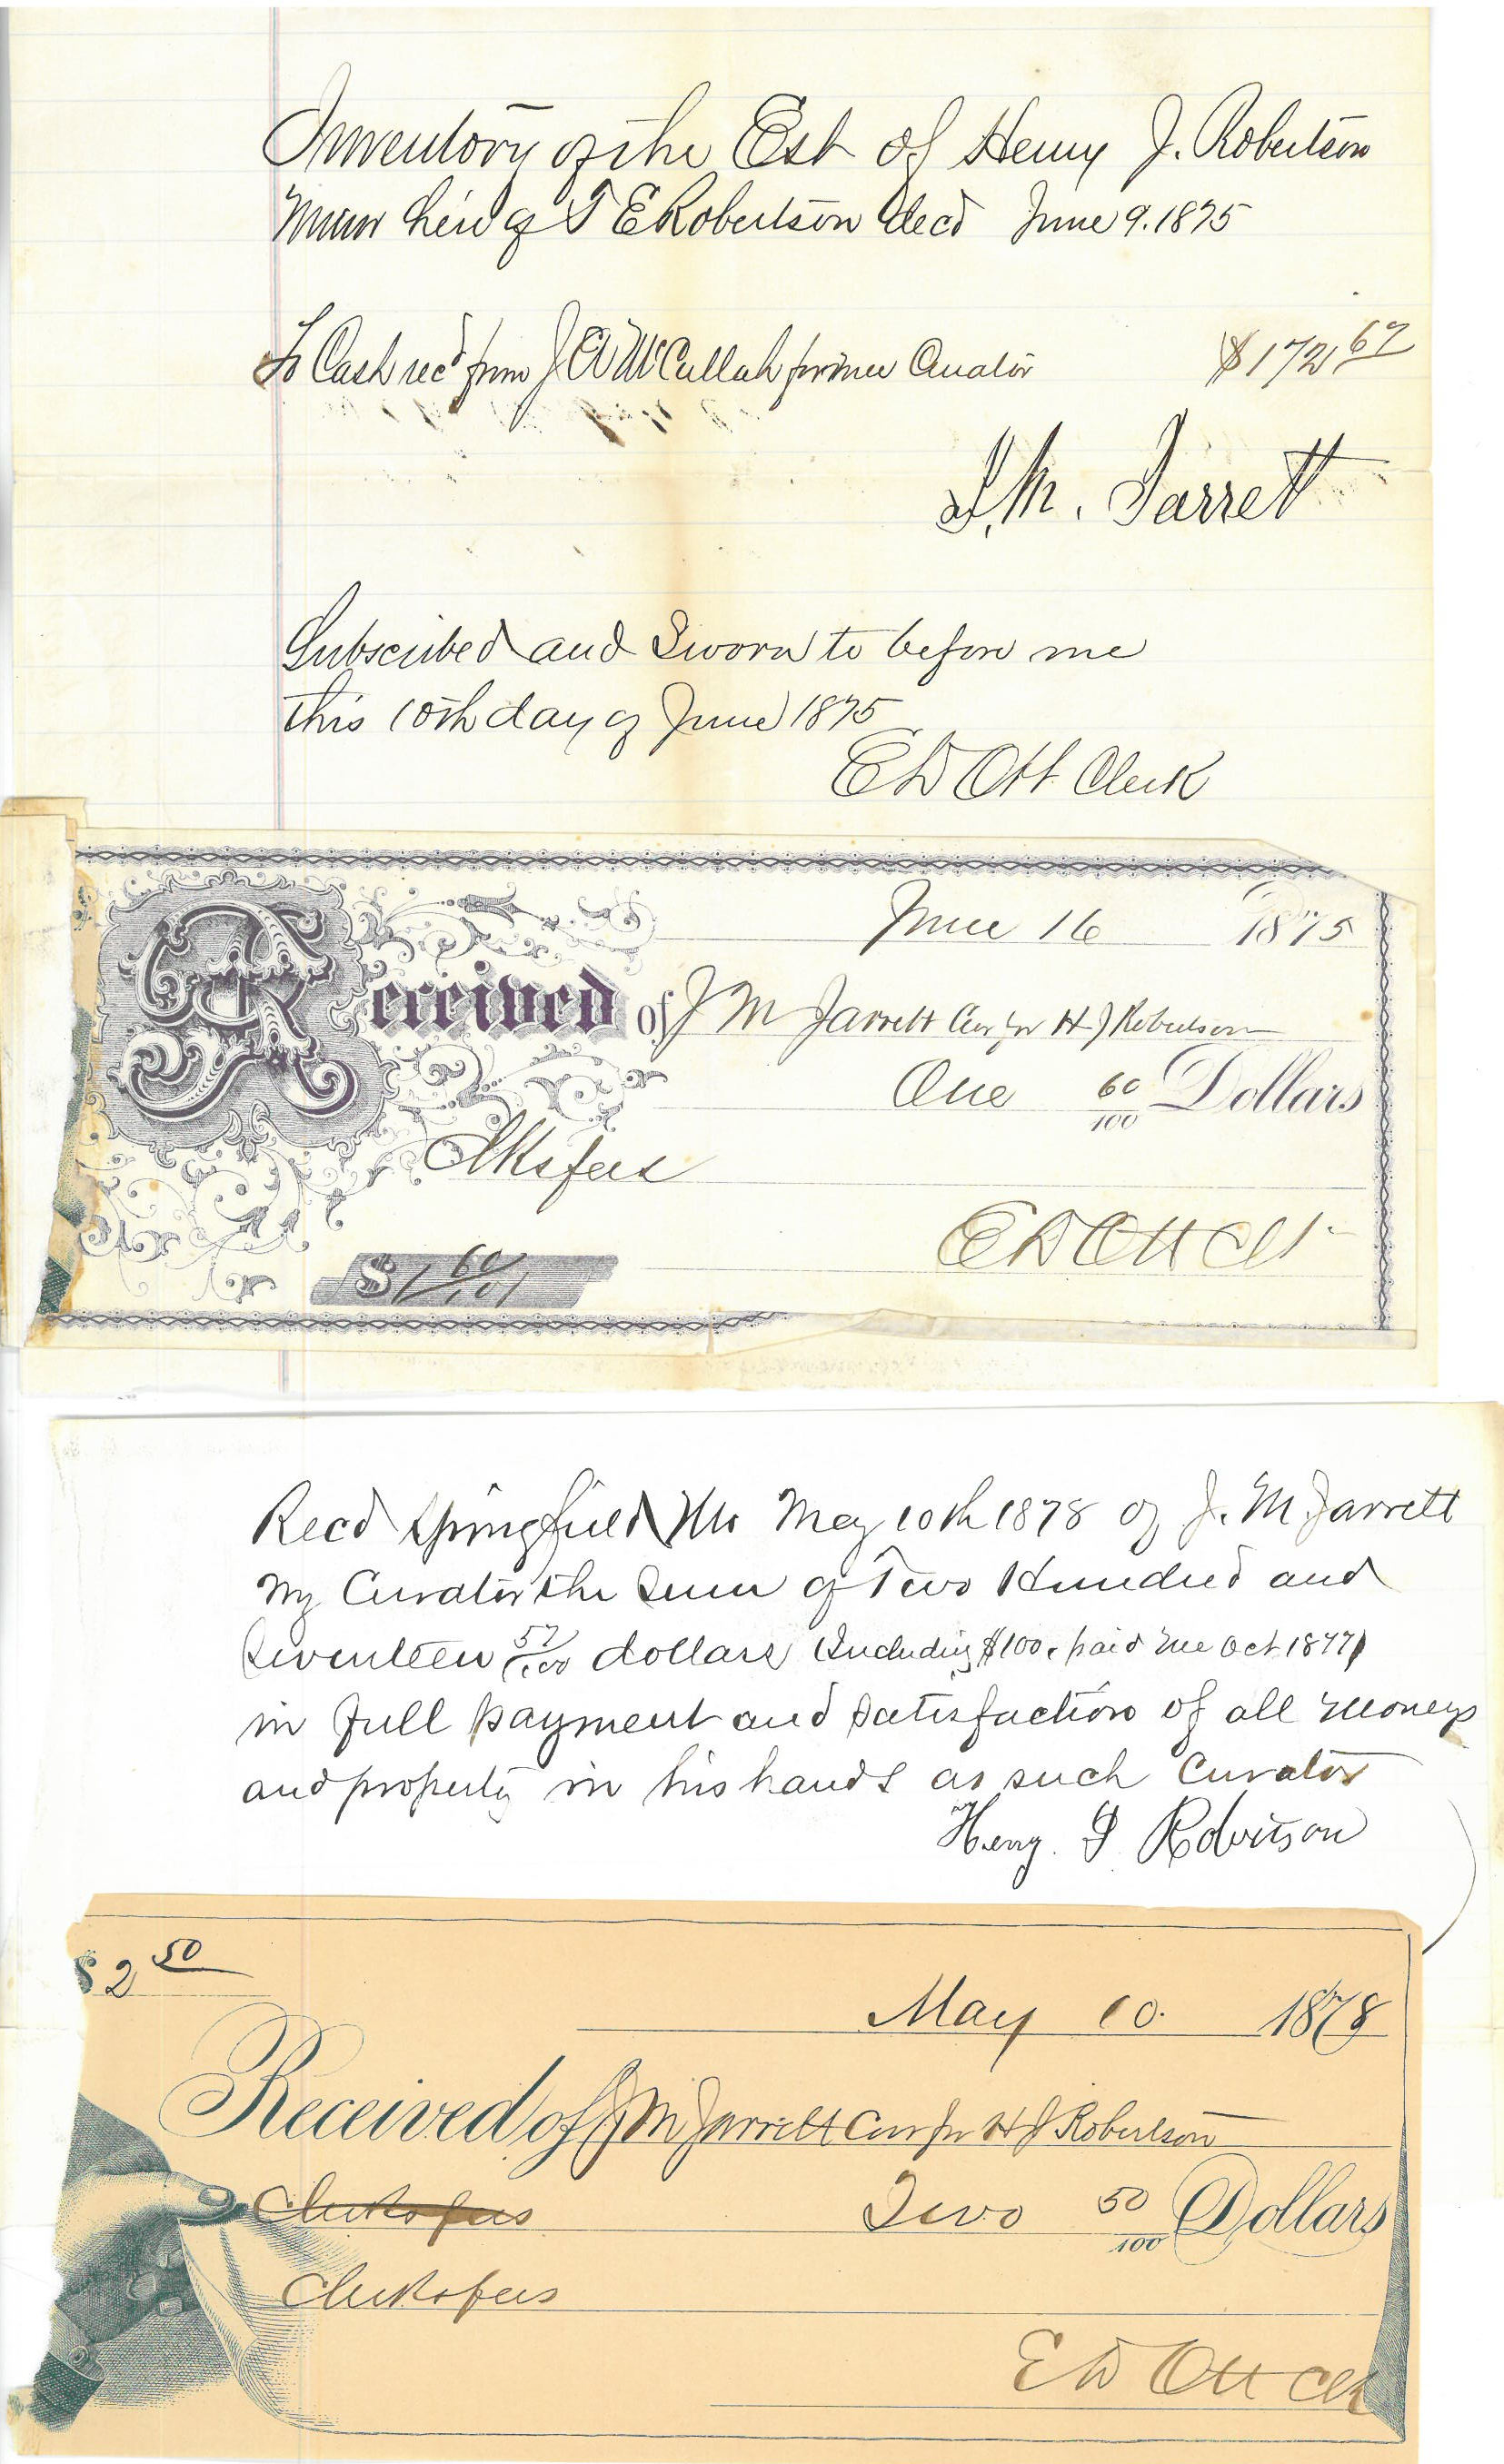 Inventory of the Est of Henry J. Robertson
Minor heir of T E Robertson decd June 9. 1875
To Cash recd from J A McCullah former Curator $172 67
J. M. Jarrett
Subscribed and Sworn to before me
this 10th day of June 1875
E D Ott Clerk
June 16 1875
Received of J M Jarrett Cur for H J Robertson
One 60/100 Dollars
Clks fees
E D Ott Clk
$1 60/100
Recd Springfield Mo May 10th 1878 of J. M. Jarrett
my Curator the Sum of Two Hundred and
Seventeen 57/100 dollars (Including $100. paid me Oct 1877)
in full payment and satisfaction of all moneys
and property in his hands as such Curator
Henry J Robertson
$2 50
May 10. 1878
Received of J M Jarrett Cur for H J Robertson
Clerks fees Two 50/100 Dollars
Clerks fees
E D Ott Clk